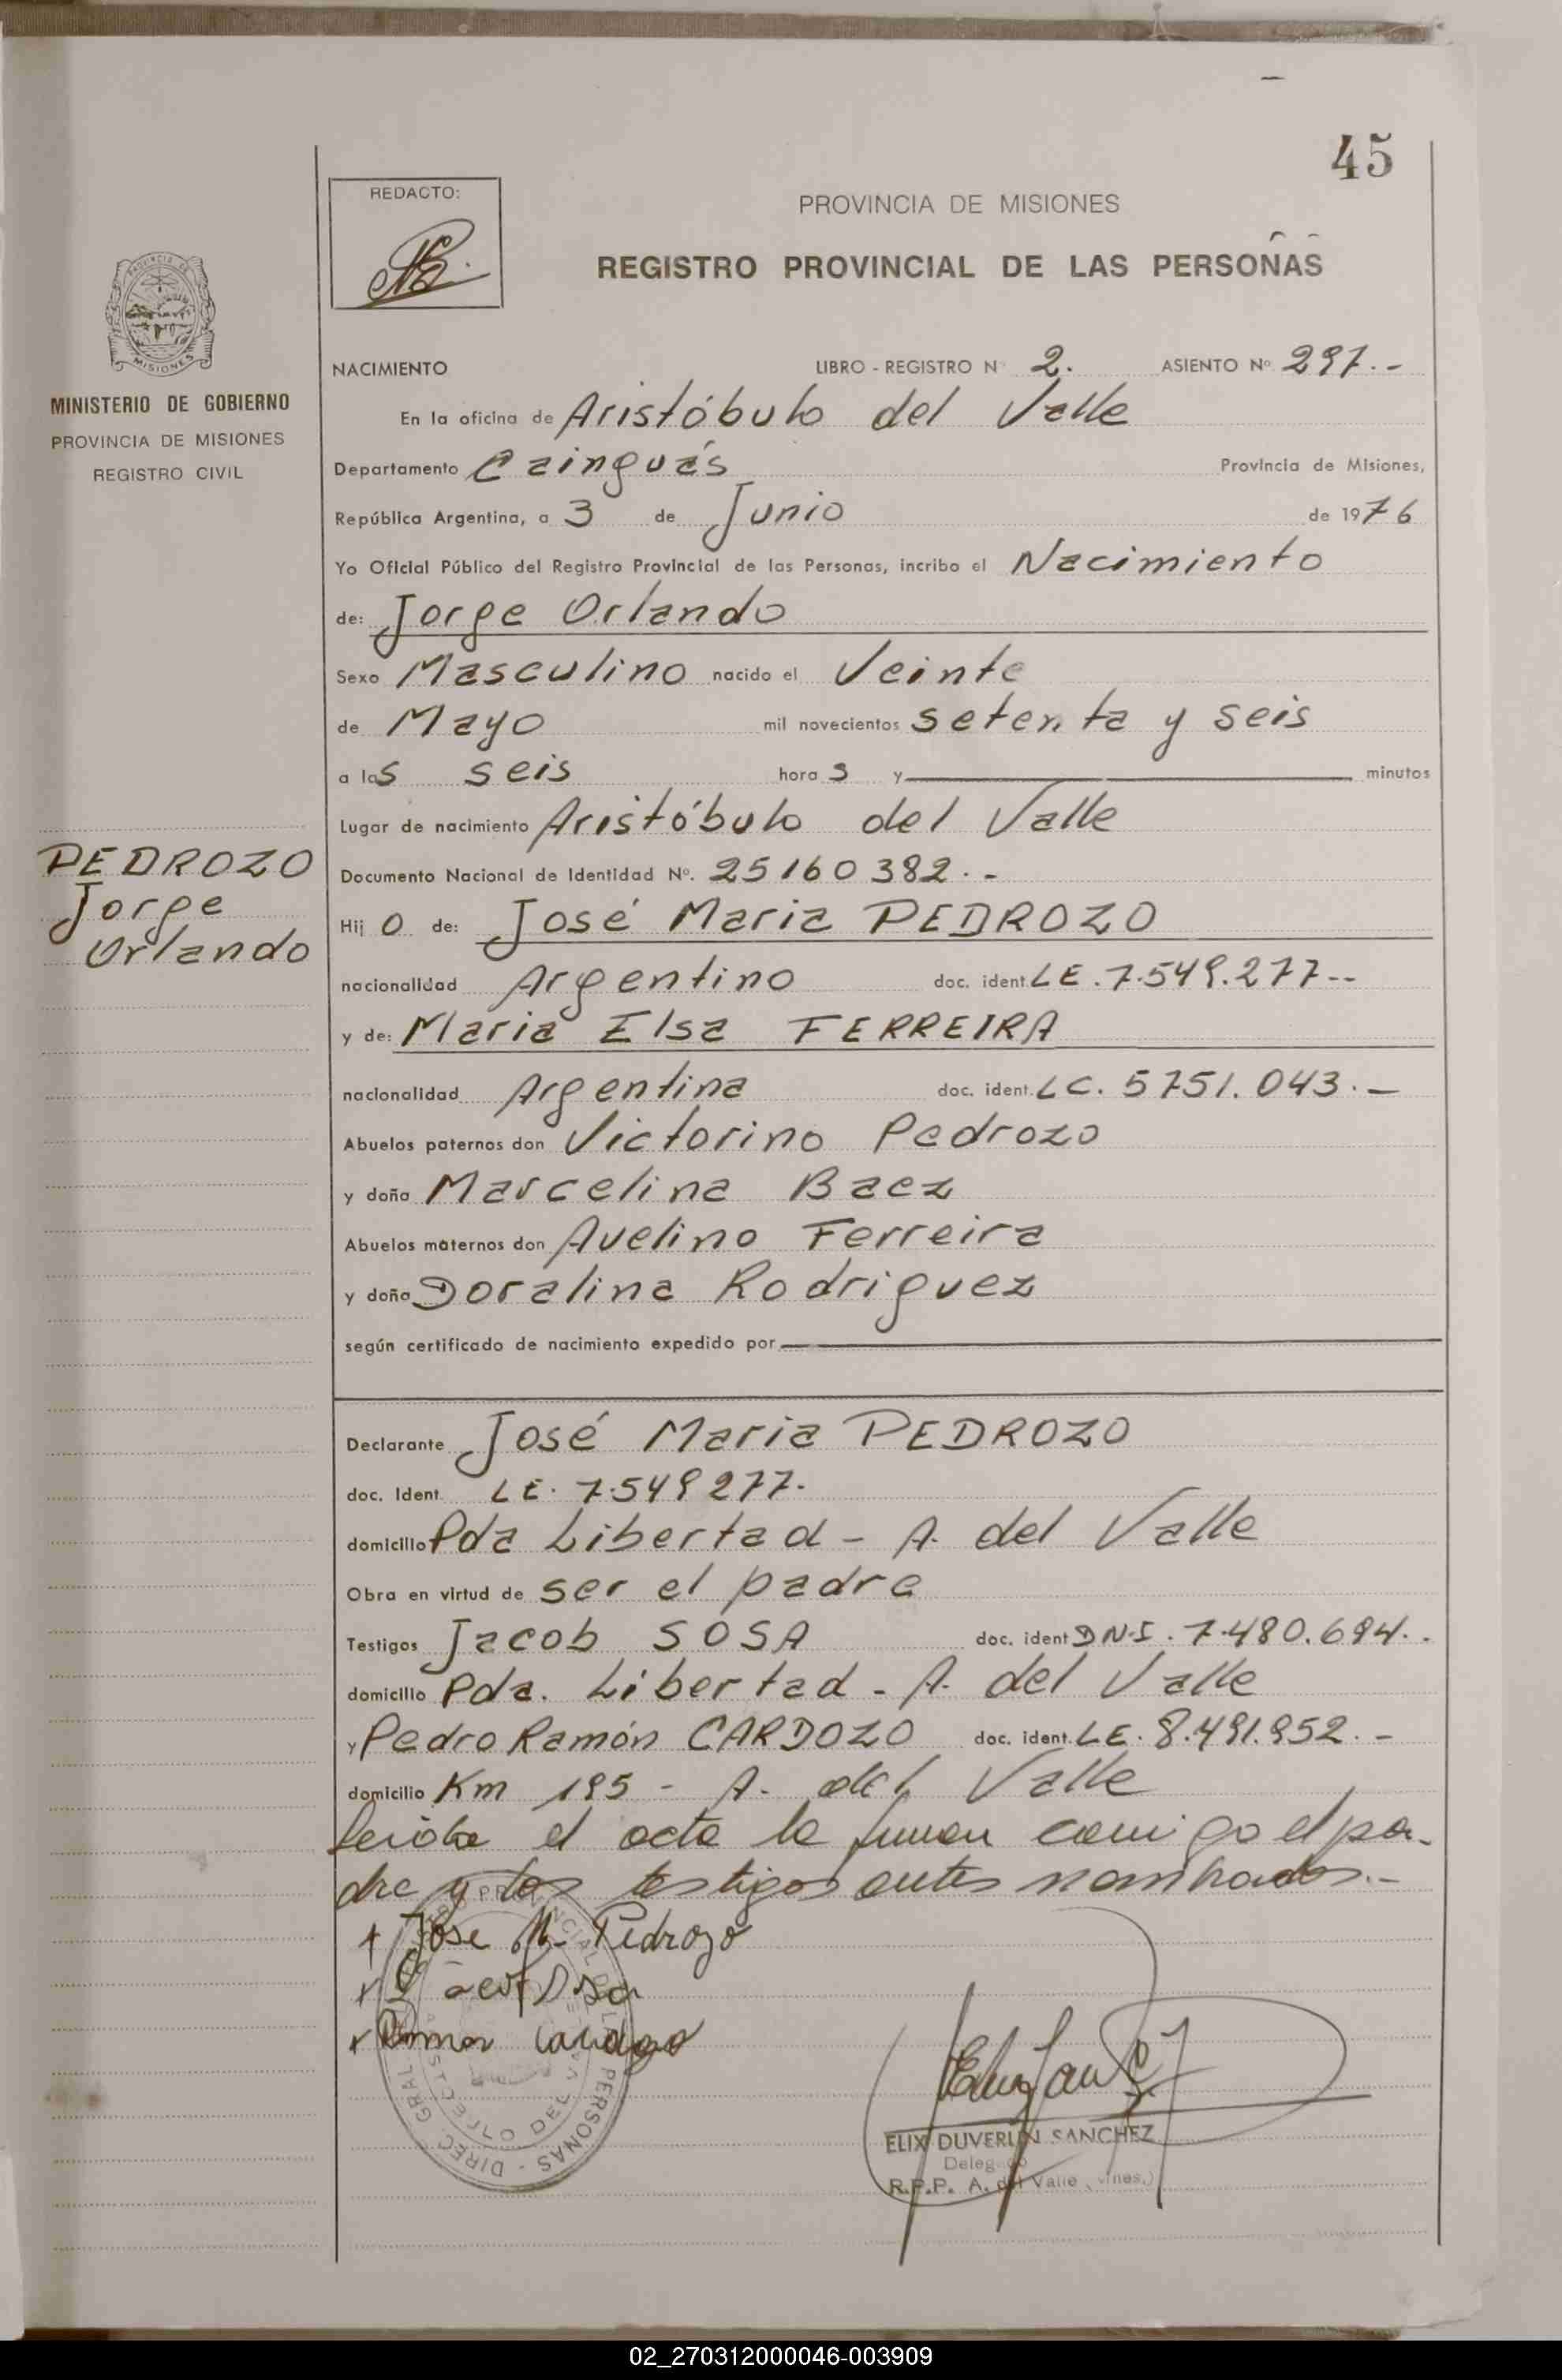 45
REDACTO:
PROVINCIA DE MISIONES
REGISTRO PROVINCIAL DE LAS PERSONAS
MISIONES
MINISTERIO DE GOBIERNO
PROVINCIA DE MISIONES
REGISTRO CIVIL
NACIMIENTO LIBRO - REGISTRO N° 2. ASIENTO Nº 297.-
En la oficina de Aristóbulo del Valle
Departamento Cainguás Provincia de Misiones,
República Argentina, a 3 de Junio de 1976
Yo Oficial Público del Registro Provincial de las Personas, incribo el Nacimiento
de: Jorge Orlando
Sexo Masculino nacido el Veinte
de Mayo mil novecientos setenta y seis
a las seis horas y minutos
Lugar de nacimiento Aristóbulo del Valle
PEDROZO
Jorge
Orlando
Documento Nacional de Identidad Nº. 25160382.-
Hijo de: José Maria PEDROZO
nacionalidad Argentino doc. ident. LE. 7.549.277--
y de: Maria Elsa FERREIRA
nacionalidad Argentina doc. ident. LC. 5751.043.-
Abuelos paternos don Victorino Pedrozo
y doña Marcelina Baez
Abuelos maternos don Avelino Ferreira
y doña Doralina Rodriguez
según certificado de nacimiento expedido por
Declarante José Maria PEDROZO
doc. Ident. LE. 7.549277.
domicilio Pda Libertad - A. del Valle
Obra en virtud de ser el padre
Testigos Jacob SOSA doc. ident DNI. 7.480.694..
domicilio Pda. Libertad - A. del Valle
y Pedro Ramón CARDOZO doc. ident. LE. 8.491.952.-
domicilio Km 195 - A. del Valle
el acta la firman comigo el pa-
dre y los testigos antes nombrados.-
Jose M. Pedrozo
ELIX DUVERLIN SANCHEZ
Delegado
R.P.P. A. del Valle
02_270312000046-003909